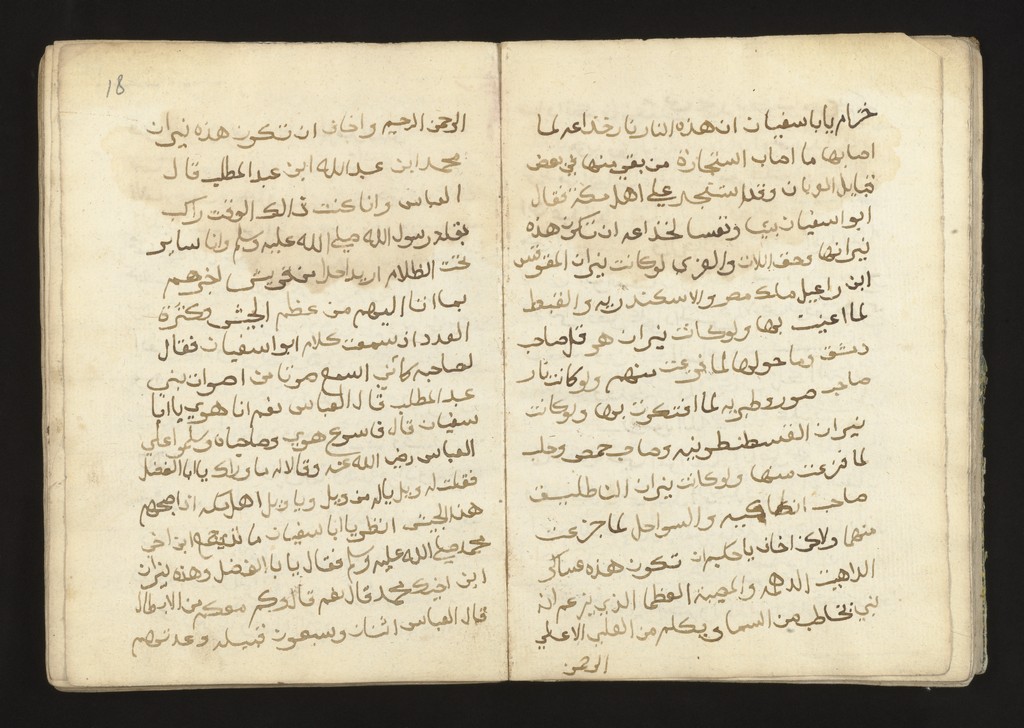 خزام يابا سفيان ان هذه النار نار خذاعه لما
اصابها ما اصاب استجارة من بقي منها في بعض
قبايل العربان وقد استنجد علي اهل مكة فقال
ابو سفيان بيبا ونفسا لخذاعه ان تكون هذه
نيرانها وحق اللات والعزي لو كانت نيران المقوقس
ابن راعيل ملك مصر والاسكندريه والقبط
لما اعنيت بها ولو كانت نيران هرقل صاحب
دمشق وما حولها لما فزعت منهم ولو كانت نار
صاحب صور وطبريه لما افتكرت بها ولو كانت
نيران القسطنطونيه وصاحب حمص وحلب
لما فزعت منها ولو كانت نيران
صاحب انطاكيه والسواحل لما جزعت
منها ولاكن اخاف يا حكيم ان تكون هذه عساكر
الداهيت الدهمه والمصيبة العظما الذي يزعم انه
نبي يخاطب من السما ويكلم من العلي الاعلي
الرحمن
18
الرحمن الرحيم واخاف ان تكون هذه نيران
محمد ابن عبد الله ابن عبد المطلب قال
العباس وانا كنت في ذالك الوقت راكب
بغلة رسول الله صلي الله عليه وسلم وانا ساير
تحت الظلام اريد احدا من قريش اخبرهم
بما اتا اليهم من عظم الجيش وكثرة
العدد اذ سمعت كلام ابو سفيان فقال
لصاحبه كاني اسمع صوتا من اصوات بني
عبد المطلب قال العباس نعم انا هوي يا ابا
سفيان قال فاسرع هوي وصاحباه وسلموا علي
العباس رضي الله عنه وقالا له ما وراك يا ابا الفضل
فقلت له ويل ياله من ويل ويا ويل اهل مكه اذا صبحهم
هذا الجيش انظر يا ابا سفيان ما ابن اخي
محمد صلي الله عليه وسلم فقال يا با الفضل وهذه نيران
ابن اخيك محمد قال نعم قال وكم معكم من الابطال
قال العباس اثنان وسبعون قبيله وعدتهم